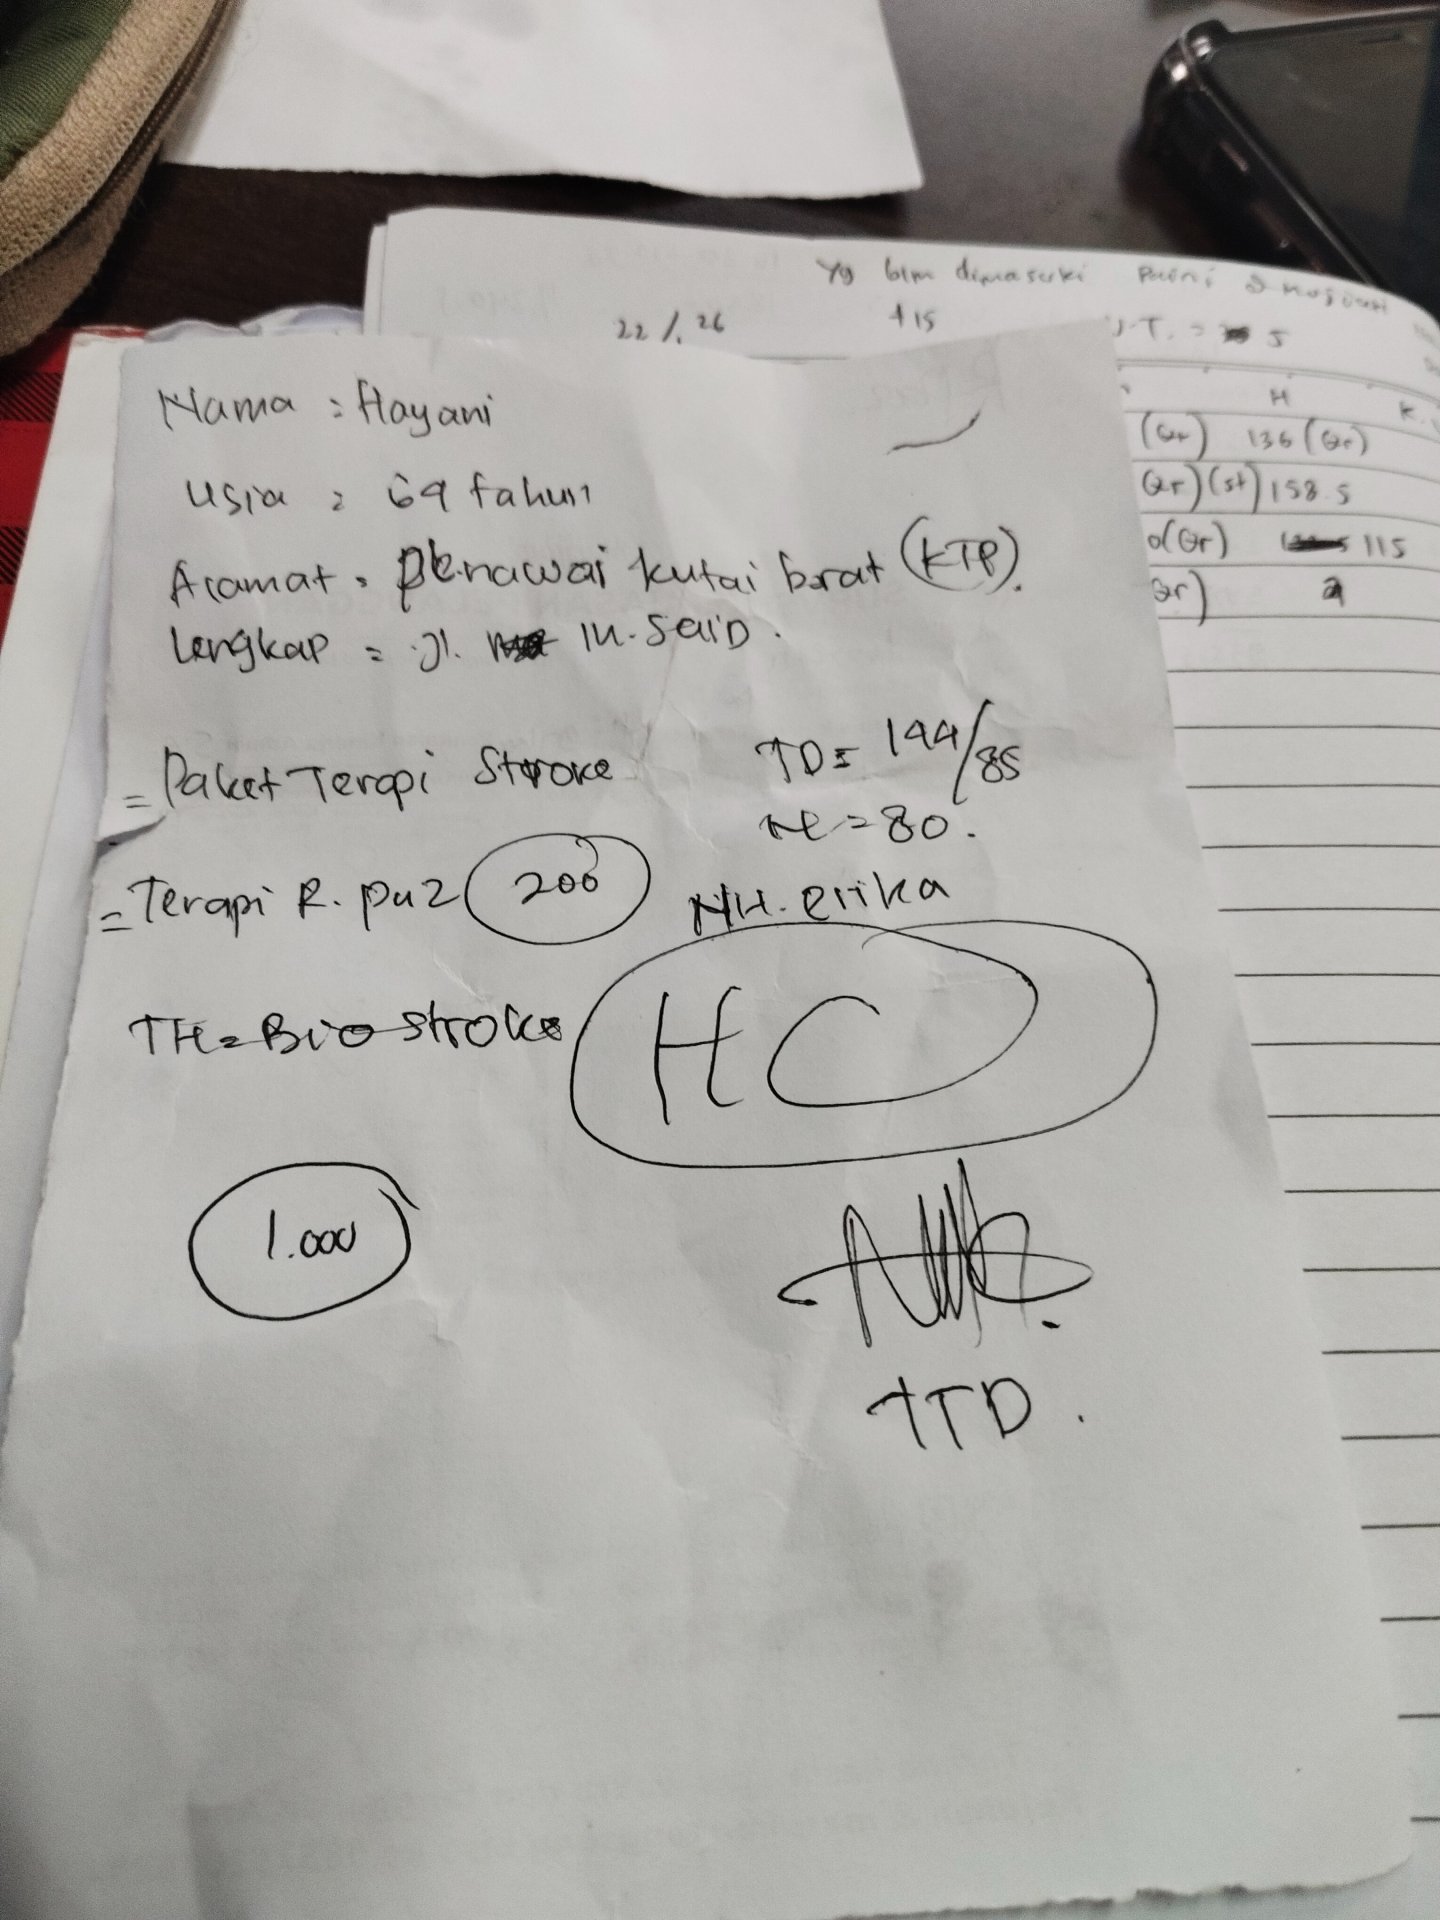 Yg blm dimasuki
22/1.26 +15 U.T. = 5
H
(Qr) 136 (Qr)
Qr) (st) 158.5
0(Qr) 115
Qr) 2
Nama = Hayani
Usia = 69 tahun
Alamat = Penawai kutai barat (KTP).
Lengkap = Jl. M. Said.
= Paket Terapi Stroke TD = 144/85
N = 80.
= Terapi R. Pu2 200 NH. erika
TH = Bio stroke HC
1.000
TTD.